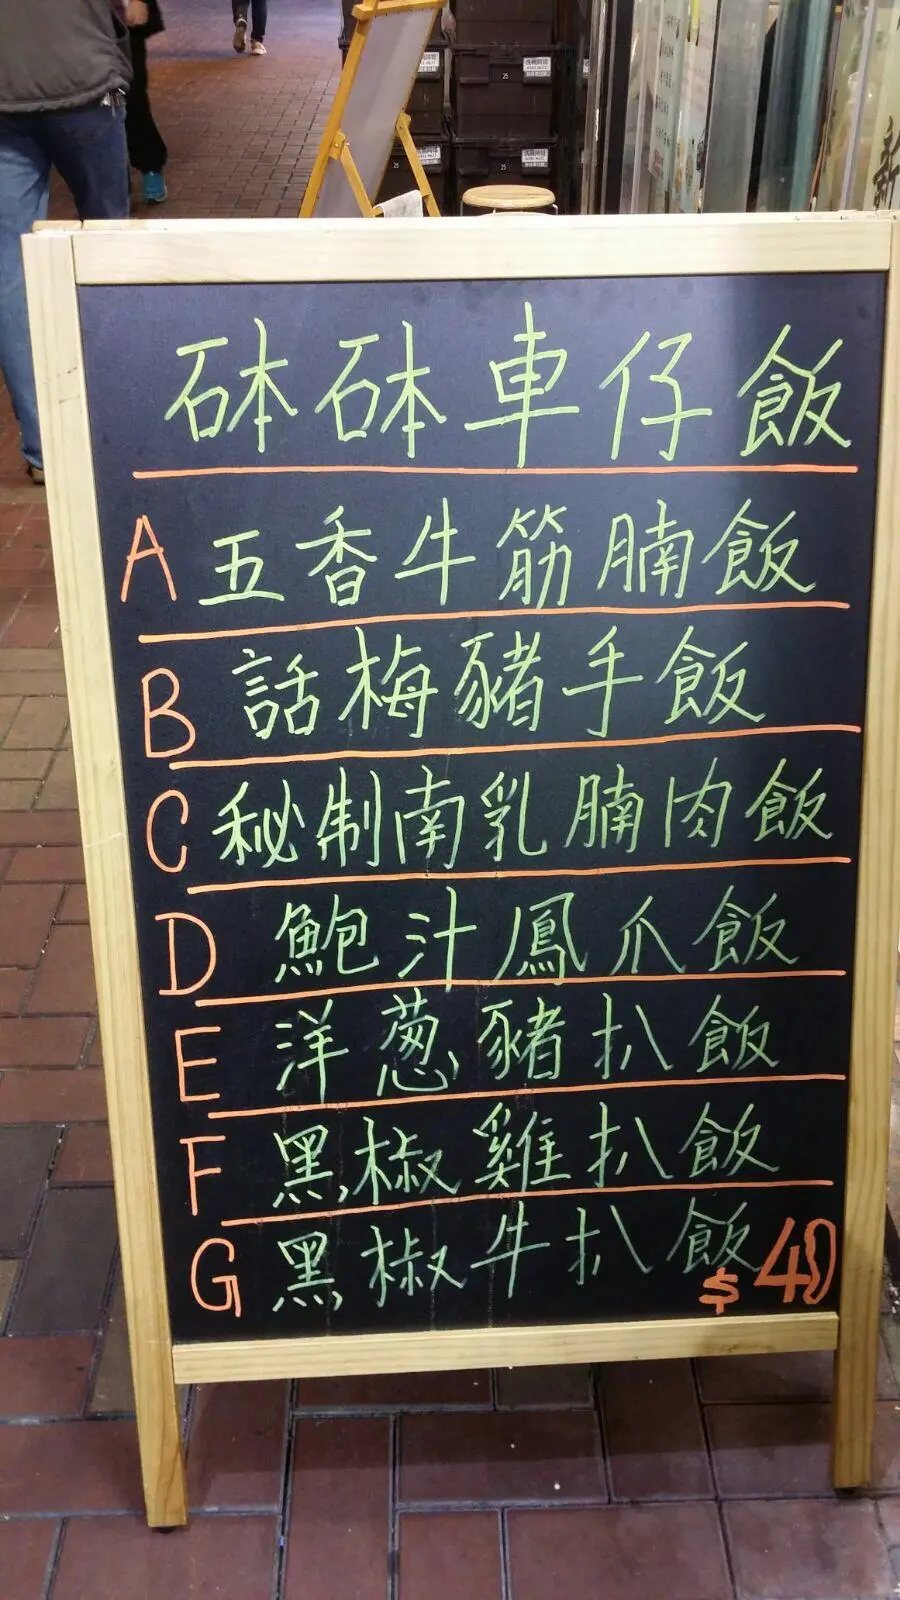 砵砵車仔飯
A 五香牛筋腩飯
B 話梅豬手飯
C 秘制南乳腩肉飯
D 鮑汁鳳爪飯
E 洋葱豬扒飯
F 黑椒雞扒飯
G 黑椒牛扒飯
$40
25
25
25
新